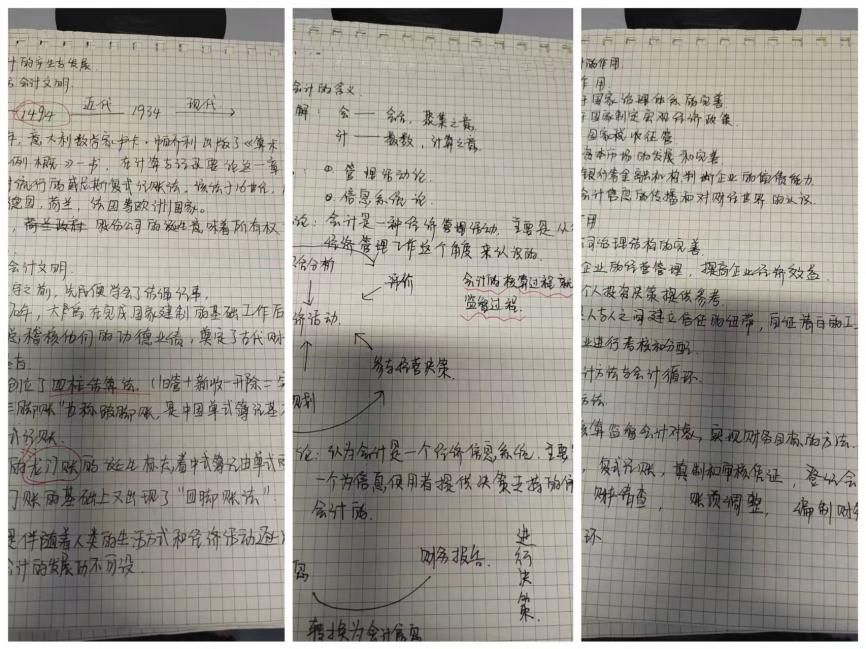 计的产生与发展
会计文明.
1494 近代 1934 现代
意大利数学家卢卡·帕乔利出版了《算术
例概》一书, 在计算与记录要论这一章
流行的威尼斯复式记账法. 该法于16世纪,
德国, 荷兰, 法国等欧洲国家.
荷兰政府 股份公司的诞生意味着所有权
会计文明.
之前, 先民便学会了结绳记事.
年, 大禹在完成国家建制的基础工作后
稽核他们的功德业绩, 奠定了古代财
创立了四柱结算法. (旧管+新收-开除=
三脚账"也称跛脚账, 是中国单式簿记
式记账.
的龙门账的诞生标志着中式簿记由单式
门账的基础上又出现了"四脚账法".
是伴随着人类的生活方式和经济活动
会计的发展功不可没.
会计的含义.
解: 会 —— 会合, 聚集之意.
计 —— 数数, 计算之意.
: ①. 管理活动论.
②. 信息系统论.
论: 会计是一种经济管理活动. 主要是从
经济管理工作这个角度来认识的.
分析
评价
会计的核算过程就
监督过程.
济活动.
参与经营决策.
规划
论: 认为会计是一个经济信息系统. 主要
一个为信息使用者提供决策支持的
会计的.
财务报告.
进行决策.
转换为会计信息
计的作用.
作用.
国家治理体系的完善
国家制定宏观经济政策.
国家税收征管
资本市场的发展和完善
银行等金融机构判断企业的偿债能力.
会计信息的传播和对财经世界的认识.
用
司治理结构的完善.
企业的经营管理, 提高企业经济效益.
个人投资决策提供参考.
人与人之间建立信任的纽带, 自证清白的工
业进行考核和分配.
计方法与会计循环.
方法.
核算监督会计对象, 实现财务目标的方法.
, 复式记账, 填制和审核凭证, 登记会
财产清查, 账项调整, 编制财
环.